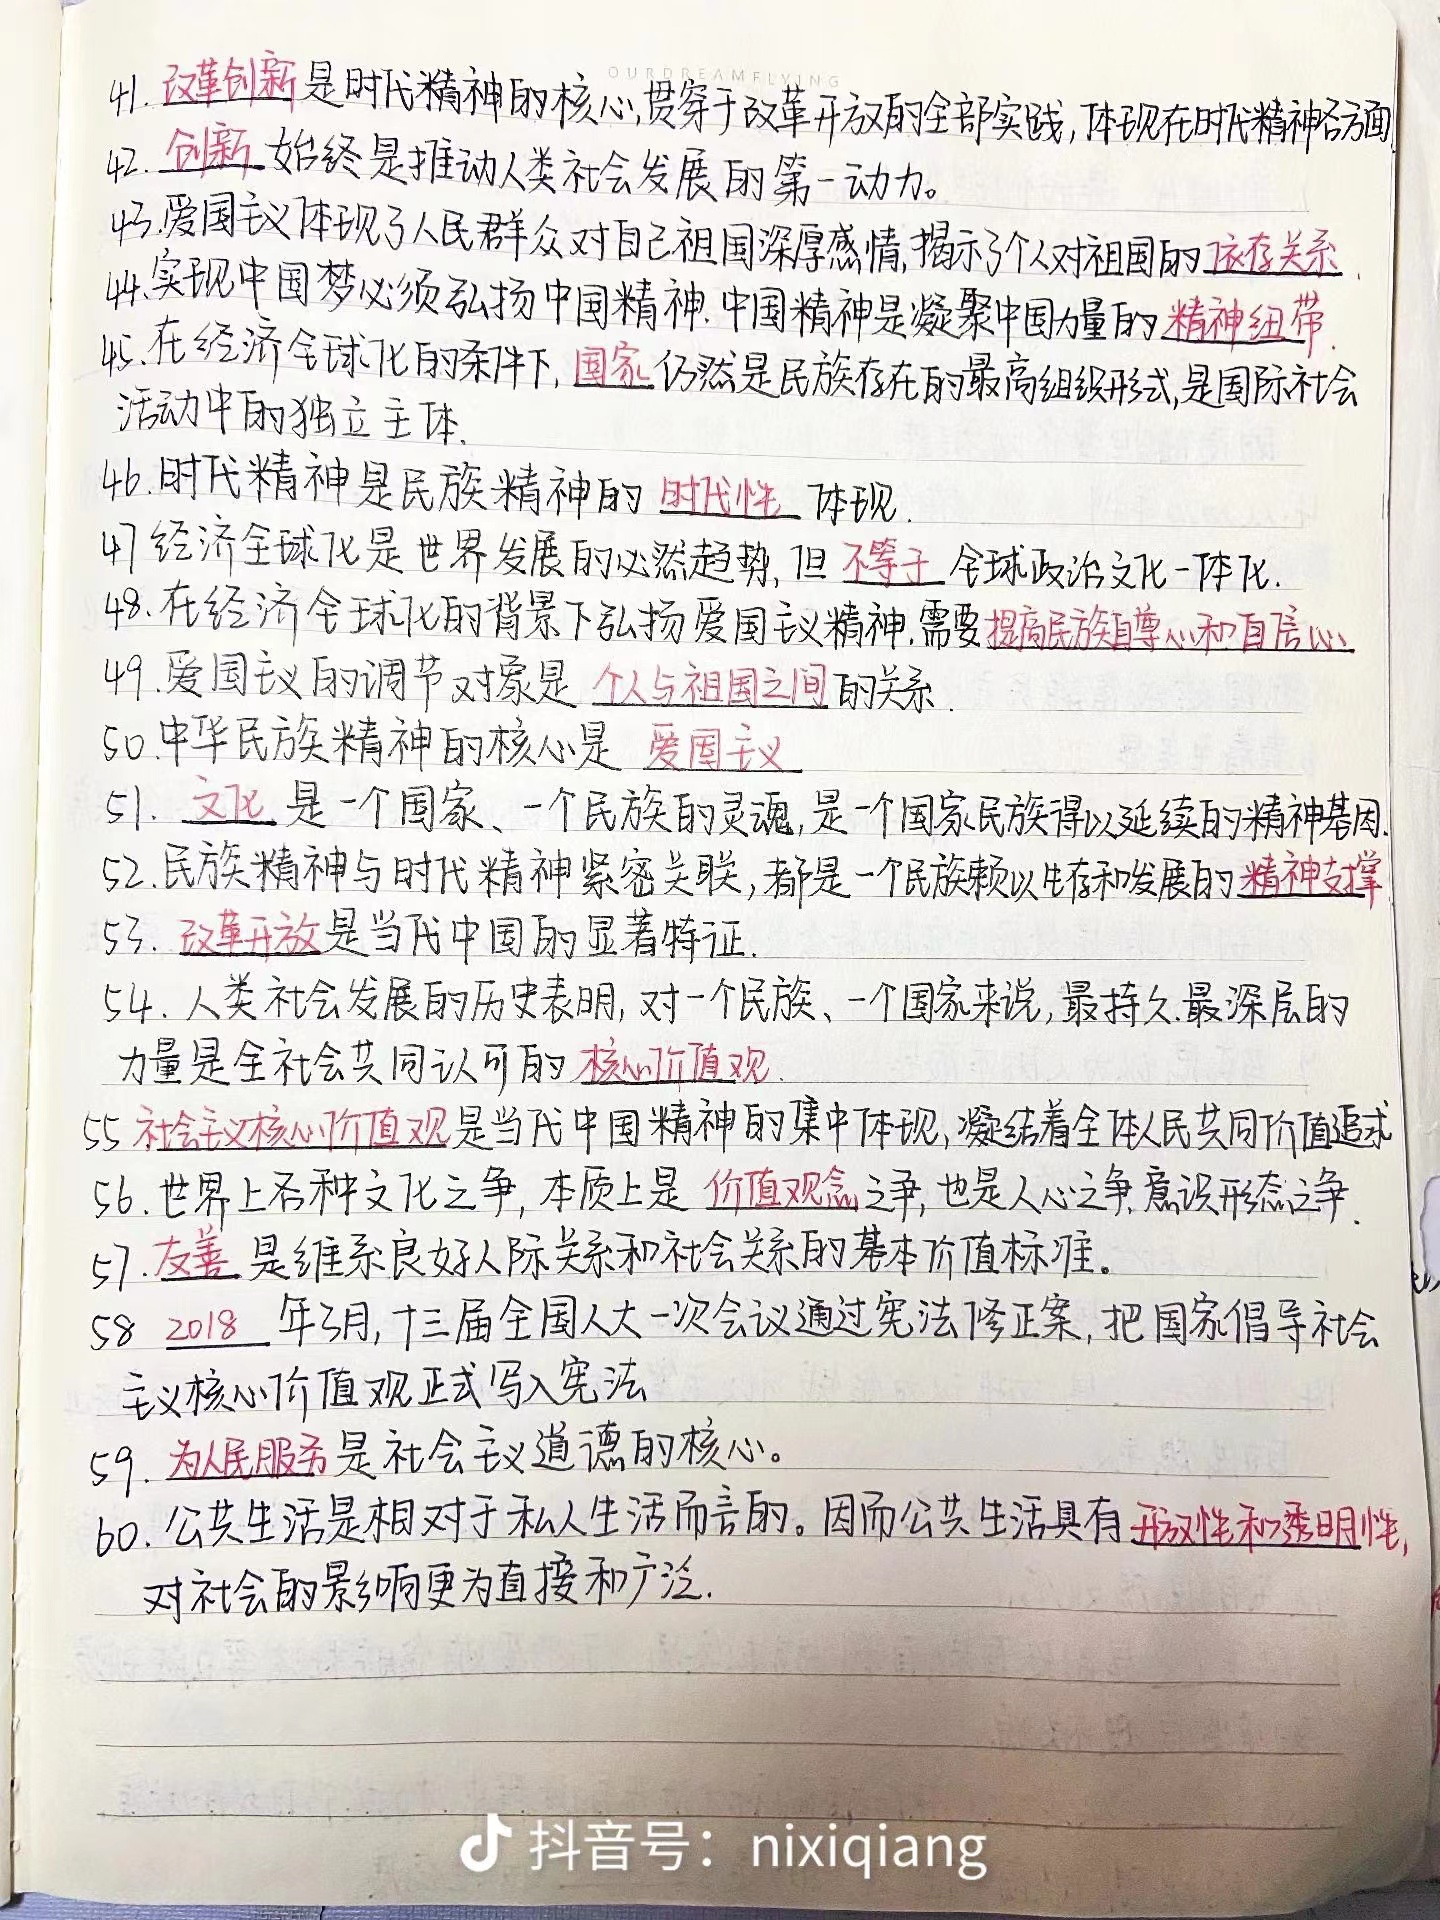 OURDREAMFLYING
41. 改革创新是时代精神的核心,贯穿于改革开放的全部实践,体现在时代精神各方面.
42. 创新 始终是推动人类社会发展的第一动力。
43.爱国主义体现了人民群众对自己祖国深厚感情,揭示了个人对祖国的依存关系.
44.实现中国梦必须弘扬中国精神.中国精神是凝聚中国力量的精神纽带.
45.在经济全球化的条件下,国家仍然是民族存在的最高组织形式,是国际社会
活动中的独立主体.
46.时代精神是民族精神的 时代性 体现.
47经济全球化是世界发展的必然趋势,但 不等于 全球政治文化一体化.
48.在经济全球化的背景下弘扬爱国主义精神.需要提高民族自尊心和自信心.
49.爱国主义的调节对象是 个人与祖国之间的关系.
50.中华民族精神的核心是 爱国主义
51. 文化 是一个国家、一个民族的灵魂,是一个国家民族得以延续的精神基因.
52.民族精神与时代精神紧密关联,都是一个民族赖以生存和发展的精神支撑
53. 改革开放是当代中国的显著特征.
54. 人类社会发展的历史表明,对一个民族、一个国家来说,最持久.最深层的
力量是全社会共同认可的 核心价值观.
55 社会主义核心价值观是当代中国精神的集中体现,凝结着全体人民共同价值追求
56.世界上各种文化之争,本质上是 价值观念之争,也是人心之争.意识形态之争.
57.友善 是维系良好人际关系和社会关系的基本价值标准。
58 2018 年3月,十三届全国人大一次会议通过宪法修正案,把国家倡导社会
主义核心价值观正式写入宪法
59. 为人民服务是社会主义道德的核心。
60.公共生活是相对于私人生活而言的。因而公共生活具有开放性和透明性,
对社会的影响更为直接和广泛.
抖音号：nixiqiang